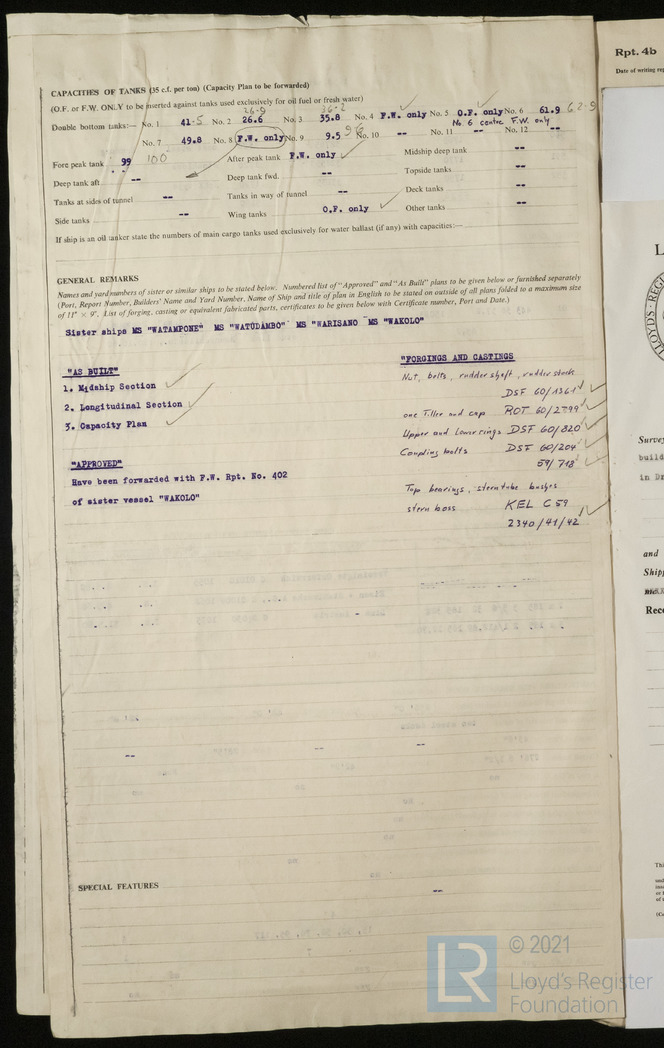 Rpt. 4b
Date of writing rep
CAPACITIES OF TANKS (35 c.f. per ton) (Capacity Plan to be forwarded)
(O.F. or F.W. ONLY to be inserted against tanks used exclusively for oil fuel or fresh water)
26-9 36-2
Double bottom tanks:— No. 1 41-5 No. 2 26.6 No. 3 35.8 No. 4 F.W. only No. 5 O.F. only No. 6 61.9 62-9
No 6 centre F.W. only
No. 7 49.8 No. 8 F.W. only No. 9 9.5 96 No. 10 -- No. 11 -- No. 12 --
Fore peak tank 99 100 After peak tank F.W. only Midship deep tank --
Deep tank aft -- Deep tank fwd. -- Topside tanks --
Tanks at sides of tunnel -- Tanks in way of tunnel -- Deck tanks --
Side tanks -- Wing tanks O.F. only Other tanks --
If ship is an oil tanker state the numbers of main cargo tanks used exclusively for water ballast (if any) with capacities:—
GENERAL REMARKS
Names and yard numbers of sister or similar ships to be stated below. Numbered list of "Approved" and "As Built" plans to be given below or furnished separately
(Port, Report Number, Builders' Name and Yard Number, Name of Ship and title of plan in English to be stated on outside of all plans folded to a maximum size
of 11" × 9". List of forging, casting or equivalent fabricated parts, certificates to be given below with Certificate number, Port and Date.)
Sister ships MS "WATAMPONE" MS "WATUDAMBO" MS "WARISANO MS "WAKOLO"
"AS BUILT"
1. Midship Section
2. Longitudinal Section
3. Capacity Plan
"APPROVED"
Have been forwarded with F.W. Rpt. No. 402
of sister vessel "WAKOLO"
"FORGINGS AND CASTINGS
Nut, bolts, rudder shaft, rudder stock
DSF 60/1361
one Tiller and cap ROT 60/2799
Upper and Lower rings DSF 60/820
Coupling bolts DSF 60/204
59/718
Top bearings, sterntube bushes
stern boss KEL C 59
2340/41/42
--
--
--
SPECIAL FEATURES
--
L
LLOYDS·REG
Survey
build
in Dr
and
Ship
Rec
LR
© 2021
Lloyd's Register
Foundation